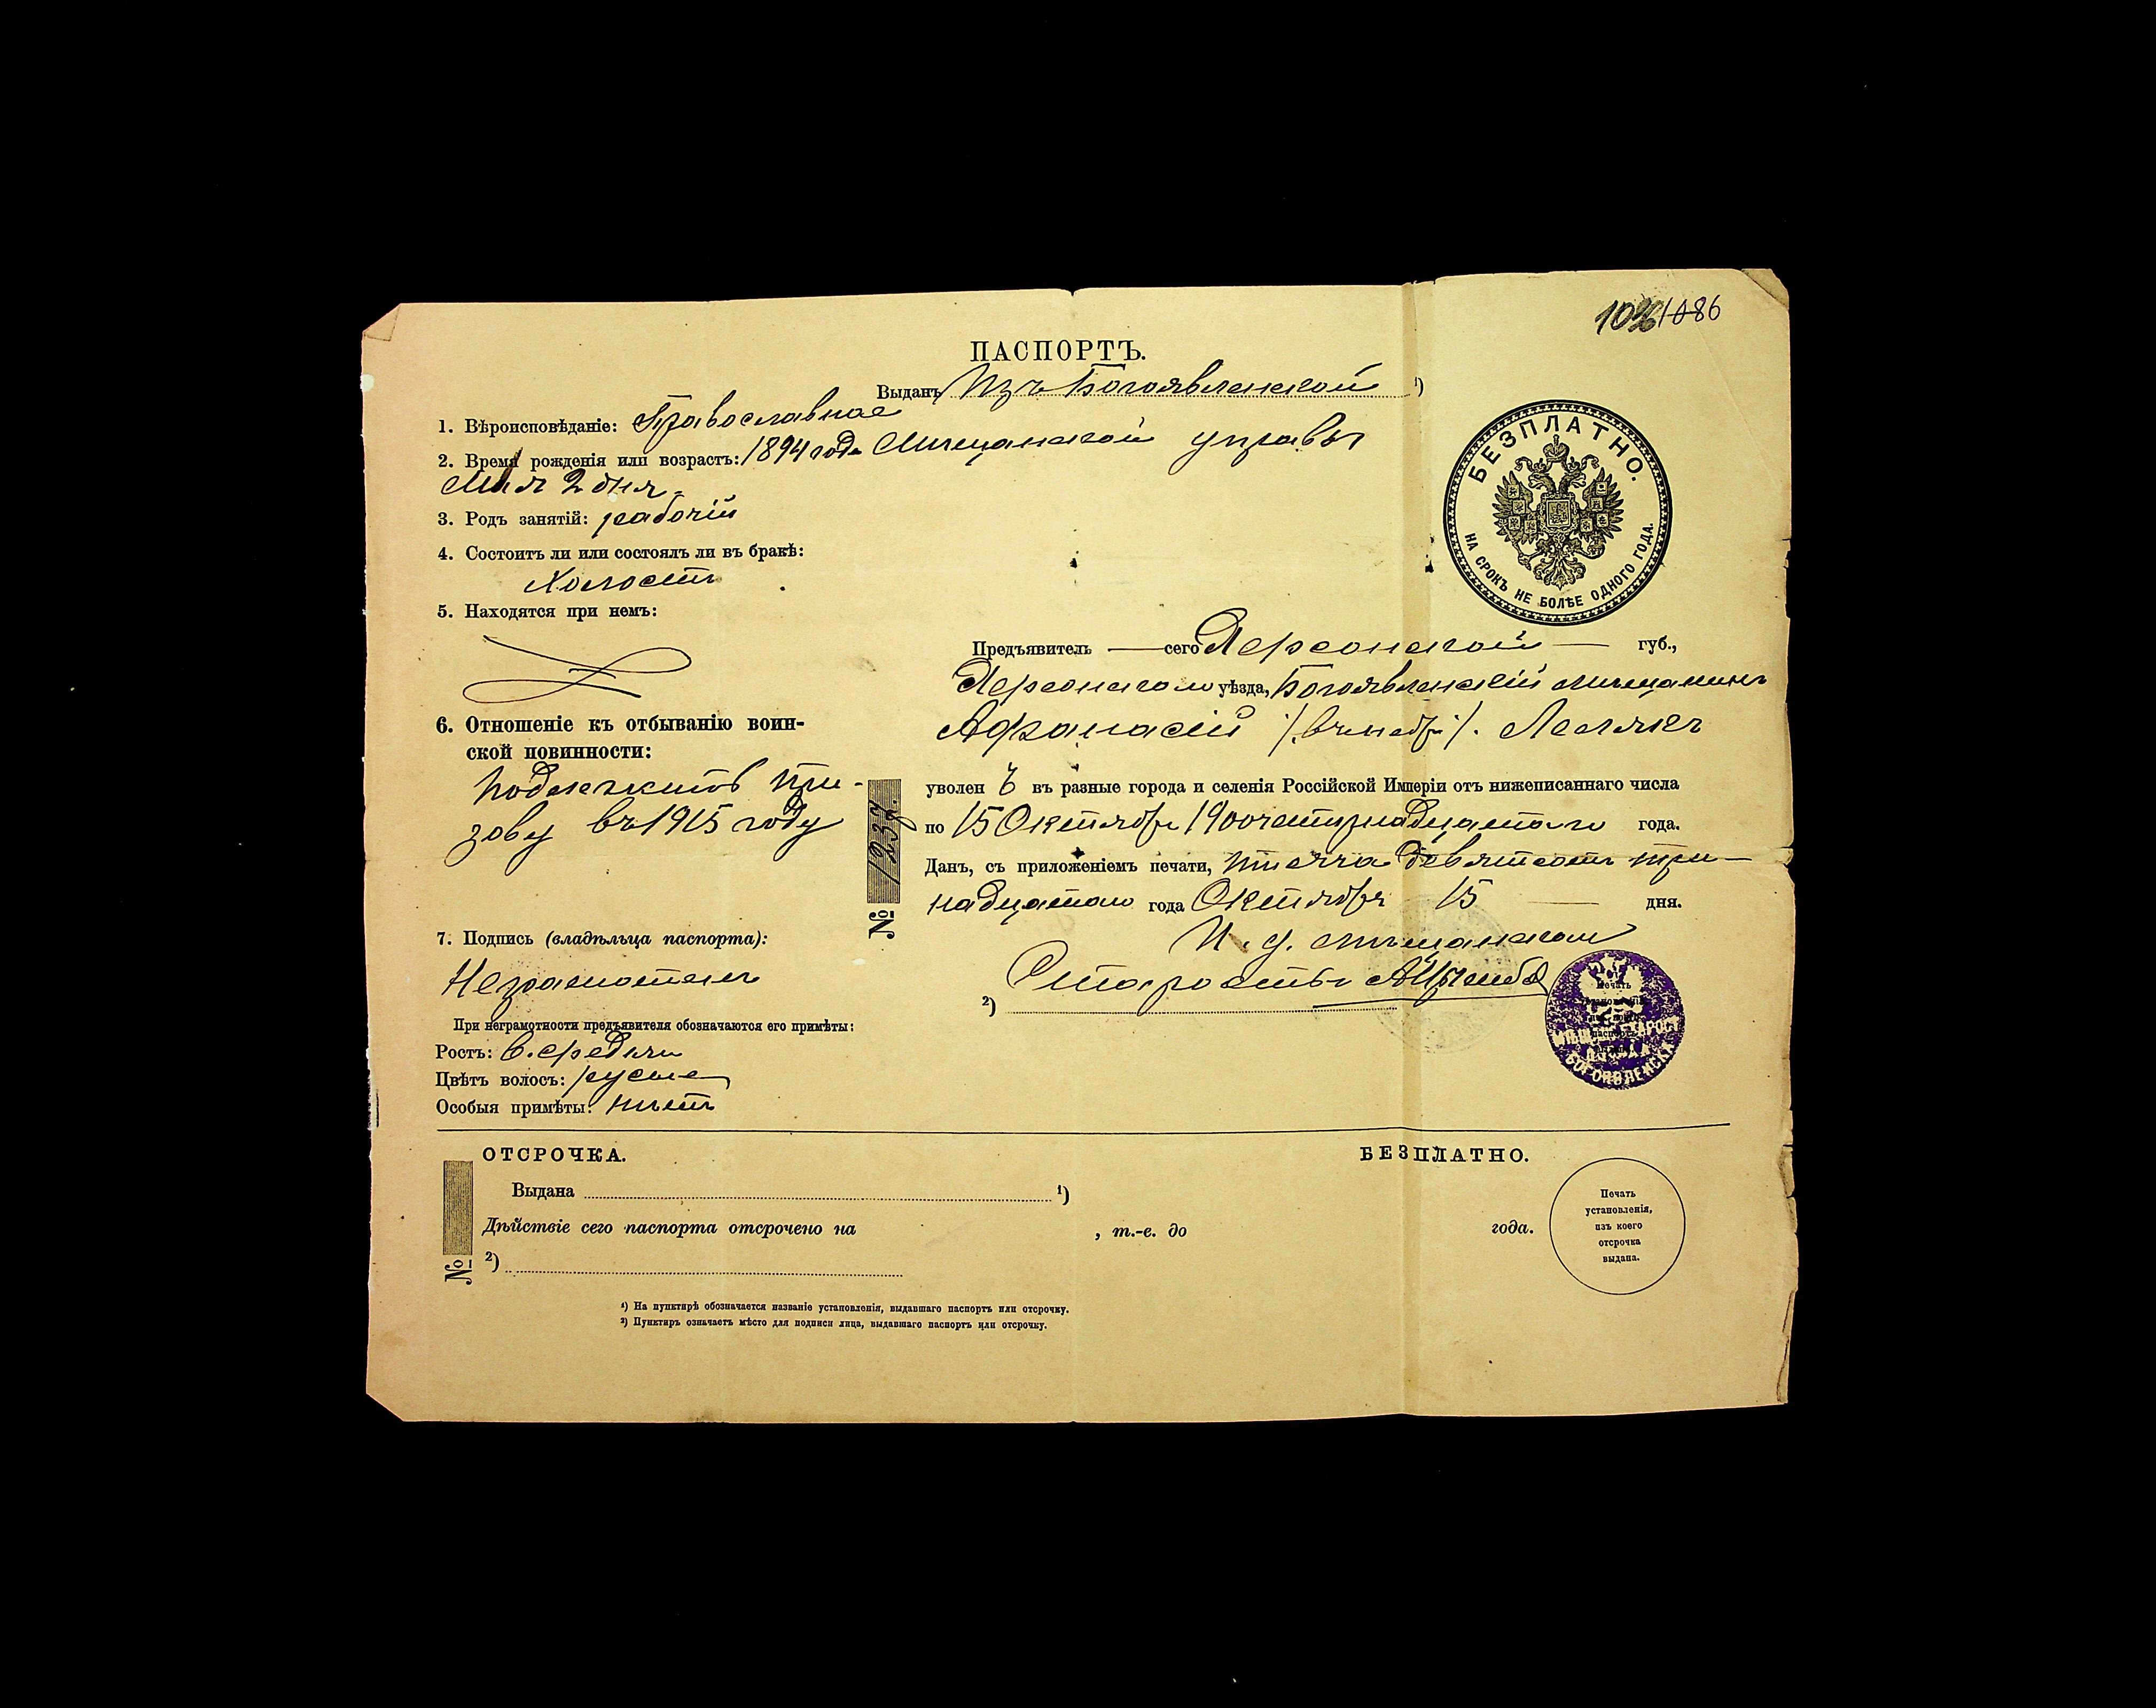 1086
ПАСПОРТЪ.
Выданъ Изъ Богоявленской ¹)
Мѣщанской управы
БЕЗПЛАТНО.
НА СРОКЪ НЕ БОЛѢЕ ОДНОГО ГОДА.
1. Вѣроисповѣданіе: Православное
2. Время рожденія или возрастъ: 1894 года
Мая 2 дня
3. Родъ занятій: рабочій
4. Состоитъ ли или состоялъ ли въ бракѣ:
Холостъ
5. Находятся при немъ:
6. Отношеніе къ отбыванію воин-
ской повинности:
Подлежитъ при-
зову въ 1915 году
7. Подпись (владѣльца паспорта):
Неграмотенъ
При неграмотности предъявителя обозначаются его примѣты:
Ростъ: в. средни
Цвѣтъ волосъ: русые
Особыя примѣты: нѣтъ
№ 1237.
Предъявитель — сего Херсонской — губ.,
Херсонскаго уѣзда, Богоявленскій мѣщанинъ
Афанасій
уволен ъ въ разные города и селенія Россійской Имперіи отъ нижеписаннаго числа
по 15 Октября 1900четырнадцатаго года.
Данъ, съ приложеніемъ печати, тысяча девятьсотъ три-
надцатаго года Октября 15 — дня.
И. д. мѣщанскаго
²) Старосты
Печать
БОГОЯВЛЕНСК
ОТСРОЧКА. БЕЗПЛАТНО.
Выдана ¹)
Дѣйствіе сего паспорта отсрочено на , т.-е. до года.
№ ²)
Печать
установленія,
изъ коего
отсрочка
выдана.
¹) На пунктирѣ обозначается названіе установленія, выдавшаго паспортъ или отсрочку.
²) Пунктиръ означаетъ мѣсто для подписи лица, выдавшаго паспортъ или отсрочку.